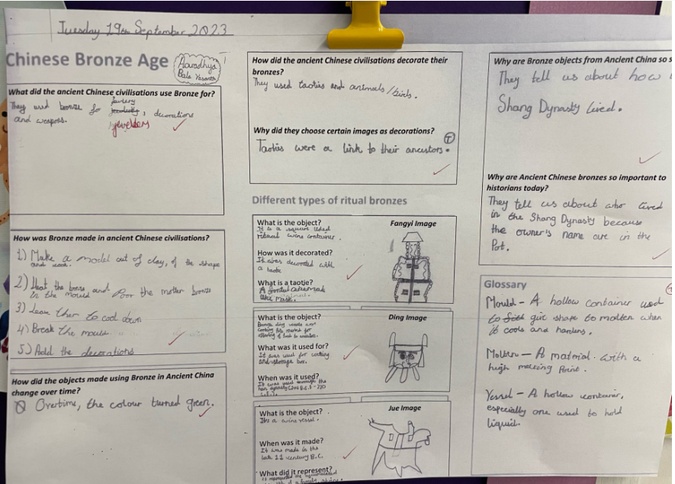 Tuesday 19th September 2023
Chinese Bronze Age
What did the ancient Chinese civilisations use Bronze for?
They used bronze for
, decorations
and weapons.
jewellery
How was Bronze made in ancient Chinese civilisations?
1) Make a model out of clay, of the shape
2) Heat the bronze and pour the molten bronze
in the mould
3) Leave them to cool down
4) Break the mould
5) Add the decorations
How did the objects made using Bronze in Ancient China
change over time?
Overtime, the colour turned green.
How did the ancient Chinese civilisations decorate their
bronzes?
They used taotias and animals/birds.
Why did they choose certain images as decorations?
Taotias were a link to their ancestors.
Different types of ritual bronzes
What is the object?
It is a square sided
ritual wine container.
How was it decorated?
It was decorated with
a taotie
What is a taotie?
Fangyi Image
What is the object?
What was it used for?
It was used for cooking
When was it used?
Ding Image
What is the object?
Its a wine vessel.
When was it made?
It was made in the
late 11 century B.C.
What did it represent?
Jue Image
Why are Bronze objects from Ancient China so s
They tell us about how
Shang Dynasty lived.
Why are Ancient Chinese bronzes so important to
historians today?
They tell us about who lived
in the Shang Dynasty because
the owner's name are in the
Pot.
Glossary
Mould - A hollow container used
to give shape to molten when
it cools and hardens.
Molten - A material with a
high melting Point.
Vessel - A hollow container,
especially one used to hold
liquid.